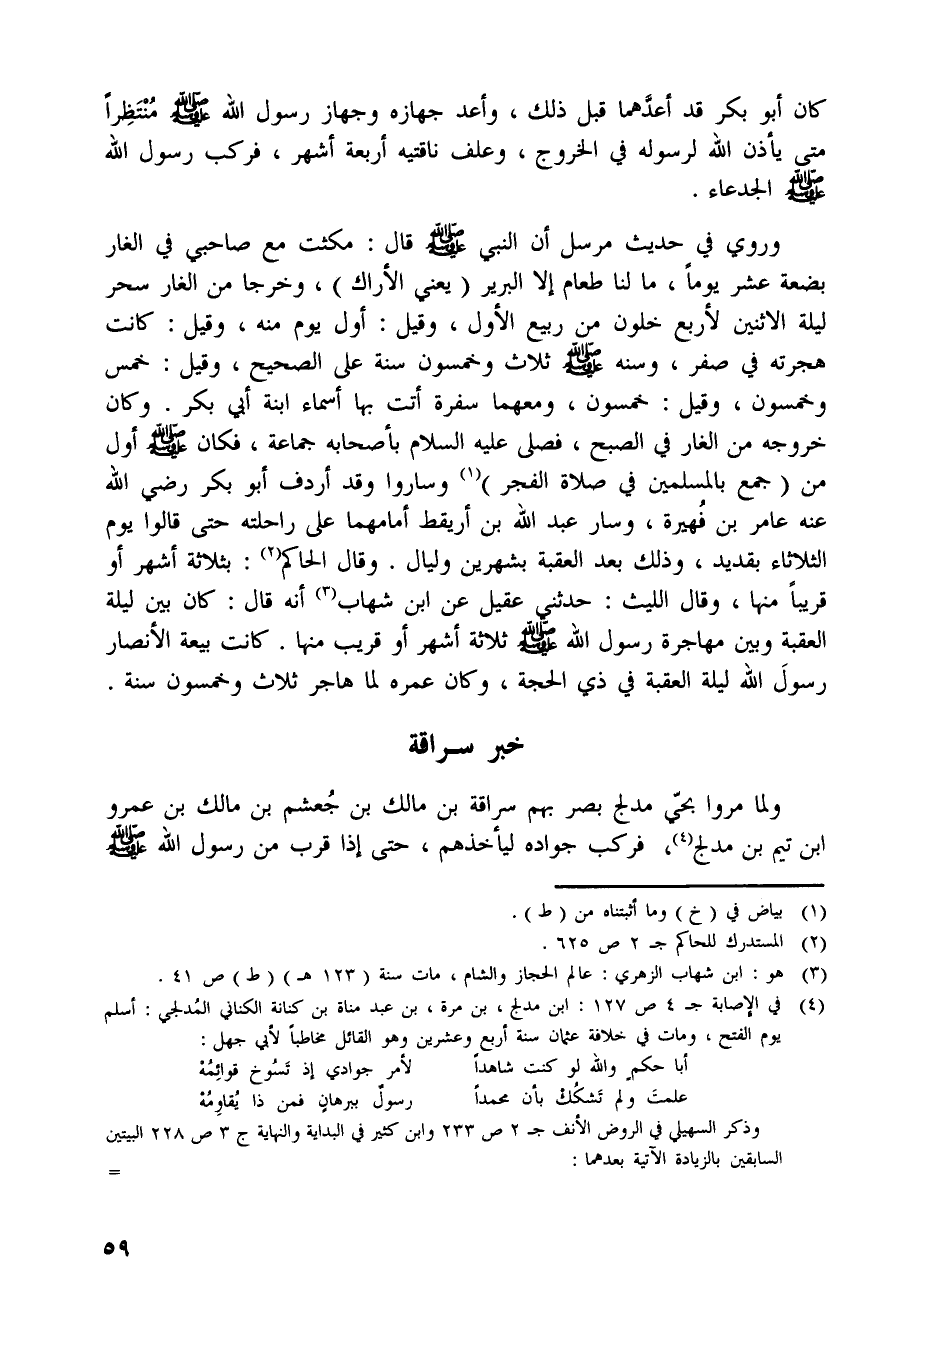 كان أبو بكر قد أعدَّهما قبل ذلك ، وأعد جهازه وجهاز رسول الله ﷺ مُنْتَظِراً
متى يأذن الله لرسوله في الخروج ، وعلف ناقتيه أربعة أشهر ، فركب رسول الله
ﷺ الجدعاء .
وروي في حديث مرسل أن النبي ﷺ قال : مكثت مع صاحبي في الغار
بضعة عشر يوماً ، ما لنا طعام إلا البرير ( يعني الأراك ) ، وخرجا من الغار سحر
ليلة الاثنين لأربع خلون من ربيع الأول ، وقيل : أول يوم منه ، وقيل : كانت
هجرته في صفر ، وسنه ﷺ ثلاث وخمسون سنة على الصحيح ، وقيل : خمس
وخمسون ، وقيل : خمسون ، ومعهما سفرة أتت بها أسماء ابنة أبي بكر . وكان
خروجه من الغار في الصبح ، فصلى عليه السلام بأصحابه جماعة ، فكان ﷺ أول
من ( جمع بالمسلمين في صلاة الفجر )(١) وساروا وقد أردف أبو بكر رضي الله
عنه عامر بن فُهيرة ، وسار عبد الله بن أريقط أمامهما على راحلته حتى قالوا يوم
الثلاثاء بقديد ، وذلك بعد العقبة بشهرين وليال . وقال الحاكم(٢) : بثلاثة أشهر أو
قريباً منها ، وقال الليث : حدثني عقيل عن ابن شهاب(٣) أنه قال : كان بين ليلة
العقبة وبين مهاجرة رسول الله ﷺ ثلاثة أشهر أو قريب منها . كانت بيعة الأنصار
رسولَ الله ليلة العقبة في ذي الحجة ، وكان عمره لما هاجر ثلاث وخمسون سنة .
خبر سراقة
ولما مروا بحيّ مدلج بصر بهم سراقة بن مالك بن جُعشم بن مالك بن عمرو
ابن تيم بن مدلج(٤)، فركب جواده ليأخذهم ، حتى إذا قرب من رسول الله ﷺ
(١) بياض في ( خ ) وما أثبتناه من ( ط ) .
(٢) المستدرك للحاكم جـ ٢ ص ٦٢٥ .
(٣) هو : ابن شهاب الزهري : عالم الحجاز والشام ، مات سنة ( ١٢٣ هـ ) ( ط ) ص ٤١ .
(٤) في الإصابة جـ ٤ ص ١٢٧ : ابن مدلج ، بن مرة ، بن عبد مناة بن كنانة الكناني المُدلجي : أسلم
يوم الفتح ، ومات في خلافة عثمان سنة أربع وعشرين وهو القائل مخاطباً لأبي جهل :
أبا حكمٍ والله لو كنت شاهداً لأمر جوادي إذ تَسُوخ قوائِمُهْ
علمتَ ولم تَشكُكْ بأن محمداً رسولٌ ببرهانٍ فمن ذا يُقاوِمُهْ
وذكر السهيلي في الروض الأنف جـ ٢ ص ٢٣٣ وابن كثير في البداية والنهاية ج ٣ ص ٢٢٨ البيتين
السابقين بالزيادة الآتية بعدهما :
=
٥٩